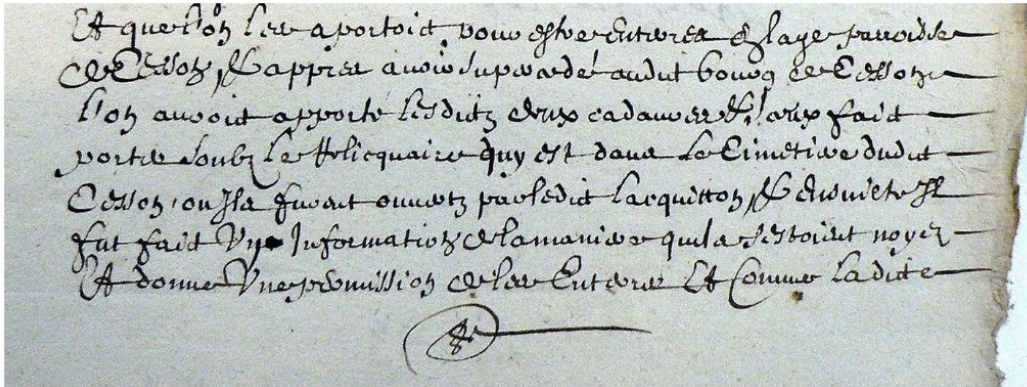 Et que l'on les aportoit pour estre enterrez en laye parroisse
de Cesson, & apprez avoir supercedé audit bourg de Cesson
l'on avoit apporté lesdictz deux cadavres & iceux fait
porter soubz le Relicquaire quy est dans le Cimetiere dudit
Cesson, ou Ils furent ouvertz par ledict Larquitton, & ensuiete Il
fut fait Une Information de la maniere quils sestoient noyez
Et donné Une permission de les Enterer Et Comme ladicte